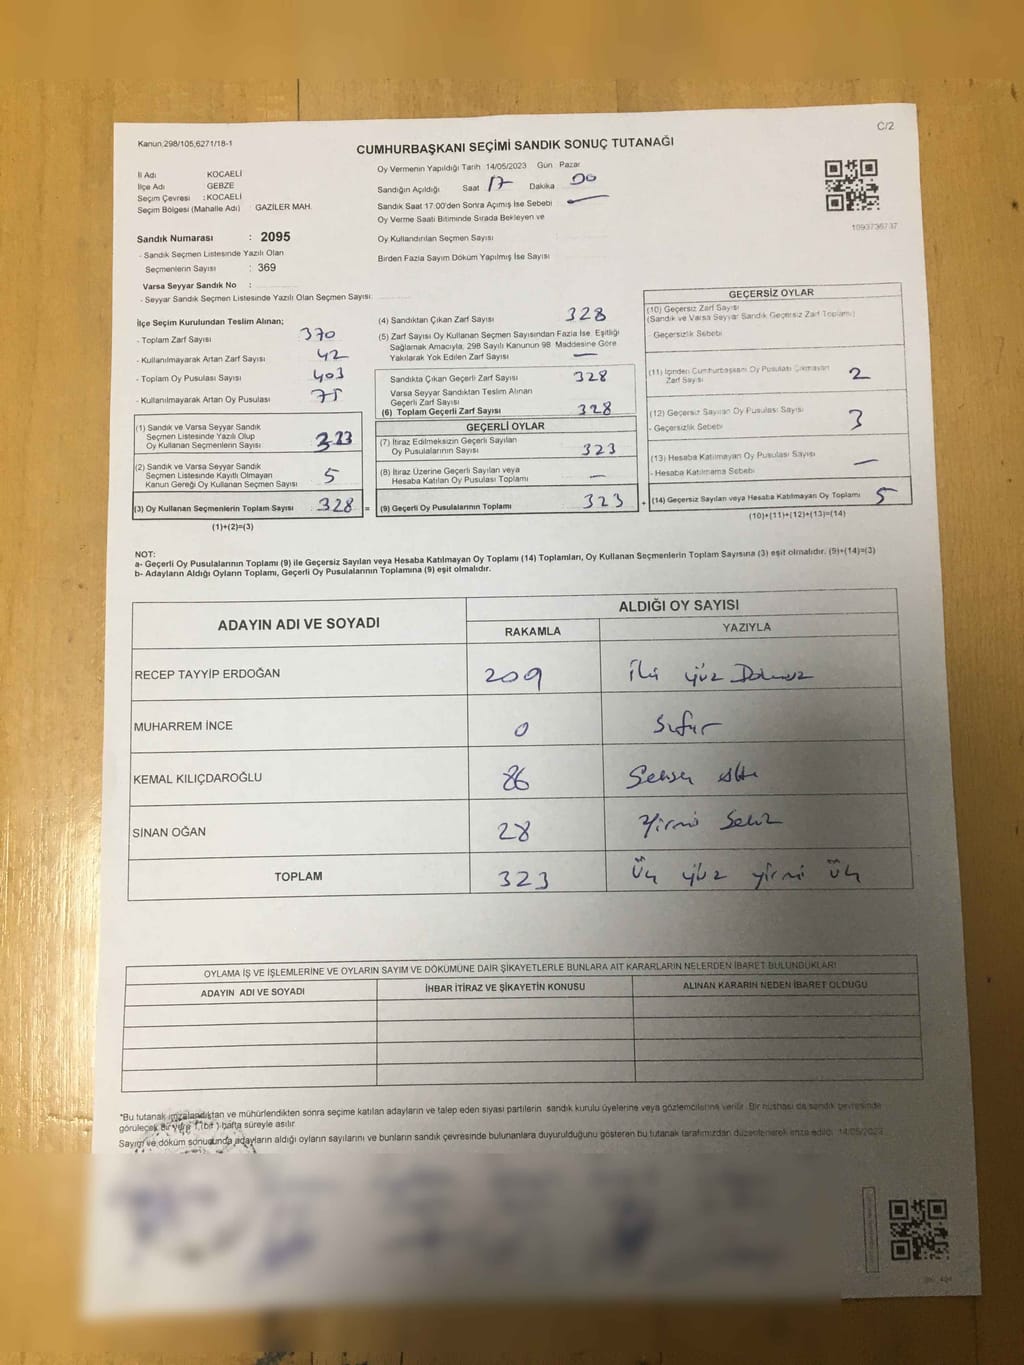 C/2
Kanun;298/105,6271/18-1
CUMHURBAŞKANI SEÇİMİ SANDIK SONUÇ TUTANAĞI
İl Adı KOCAELİ
İlçe Adı GEBZE
Seçim Çevresi : KOCAELİ
Seçim Bölgesi (Mahalle Adı) : GAZİLER MAH.
Sandık Numarası : 2095
- Sandık Seçmen Listesinde Yazılı Olan
Seçmenlerin Sayısı : 369
Varsa Seyyar Sandık No :
- Seyyar Sandık Seçmen Listesinde Yazılı Olan Seçmen Sayısı:
Oy Vermenin Yapıldığı Tarih 14/05/2023 Gün Pazar
Sandığın Açıldığı Saat 17 Dakika 00
Sandık Saat 17:00'den Sonra Açımış İse Sebebi —
Oy Verme Saati Bitiminde Sırada Bekleyen ve
Oy Kullandırılan Seçmen Sayısı
Birden Fazla Sayım Döküm Yapılmış İse Sayısı
1093736737
İlçe Seçim Kurulundan Teslim Alınan;
- Toplam Zarf Sayısı 370
- Kullanılmayarak Artan Zarf Sayısı 42
- Toplam Oy Pusulası Sayısı 403
- Kullanılmayarak Artan Oy Pusulası 75
(1) Sandık ve Varsa Seyyar Sandık
Seçmen Listesinde Yazılı Olup
Oy Kullanan Seçmenlerin Sayısı 323
(2) Sandık ve Varsa Seyyar Sandık
Seçmen Listesinde Kayıtlı Olmayan
Kanun Gereği Oy Kullanan Seçmen Sayısı 5
(3) Oy Kullanan Seçmenlerin Toplam Sayısı 328 =
(1)+(2)=(3)
(4) Sandıktan Çıkan Zarf Sayısı 328
(5) Zarf Sayısı Oy Kullanan Seçmen Sayısından Fazla İse, Eşitliği
Sağlamak Amacıyla, 298 Sayılı Kanunun 98. Maddesine Göre
Yakılarak Yok Edilen Zarf Sayısı —
Sandıkta Çıkan Geçerli Zarf Sayısı 328
Varsa Seyyar Sandıktan Teslim Alınan
Geçerli Zarf Sayısı
(6) Toplam Geçerli Zarf Sayısı 328
GEÇERLİ OYLAR
(7) İtiraz Edilmeksizin Geçerli Sayılan
Oy Pusulalarının Sayısı 323
(8) İtiraz Üzerine Geçerli Sayılan veya
Hesaba Katılan Oy Pusulası Toplamı —
(9) Geçerli Oy Pusulalarının Toplamı 323 +
GEÇERSİZ OYLAR
(10) Geçersiz Zarf Sayısı
(Sandık ve Varsa Seyyar Sandık Geçersiz Zarf Toplamı)
- Geçersizlik Sebebi
(11) İçinden Cumhurbaşkanı Oy Pusulası Çıkmayan
Zarf Sayısı 2
(12) Geçersiz Sayılan Oy Pusulası Sayısı 3
- Geçersizlik Sebebi
(13) Hesaba Katılmayan Oy Pusulası Sayısı —
- Hesaba Katılmama Sebebi
(14) Geçersiz Sayılan veya Hesaba Katılmayan Oy Toplamı 5
(10)+(11)+(12)+(13)=(14)
NOT:
a- Geçerli Oy Pusulalarının Toplamı (9) ile Geçersiz Sayılan veya Hesaba Katılmayan Oy Toplamı (14) Toplamları, Oy Kullanan Seçmenlerin Toplam Sayısına (3) eşit olmalıdır. (9)+(14)=(3)
b- Adayların Aldığı Oyların Toplamı, Geçerli Oy Pusulalarının Toplamına (9) eşit olmalıdır.
ADAYIN ADI VE SOYADI ALDIĞI OY SAYISI
RAKAMLA YAZIYLA
RECEP TAYYİP ERDOĞAN 209 İki yüz Dokuz
MUHARREM İNCE 0 Sıfır
KEMAL KILIÇDAROĞLU 86 Seksen altı
SİNAN OĞAN 28 Yirmi Sekiz
TOPLAM 323 Üç yüz yirmi üç
OYLAMA İŞ VE İŞLEMLERİNE VE OYLARIN SAYIM VE DÖKÜMÜNE DAİR ŞİKAYETLERLE BUNLARA AİT KARARLARIN NELERDEN İBARET BULUNDUKLARI
ADAYIN ADI VE SOYADI İHBAR İTİRAZ VE ŞİKAYETİN KONUSU ALINAN KARARIN NEDEN İBARET OLDUĞU
*Bu tutanak imzalandıktan ve mühürlendikten sonra seçime katılan adayların ve talep eden siyasi partilerin sandık kurulu üyelerine veya gözlemcilerine verilir. Bir nüshası da sandık çevresinde
görülecek bir yere 1 (bir) hafta süreyle asılır
Sayım ve döküm sonucunda adayların aldığı oyların sayılarını ve bunların sandık çevresinde bulunanlara duyurulduğunu gösteren bu tutanak tarafımızdan düzenlenerek imza edildi. 14/05/2023